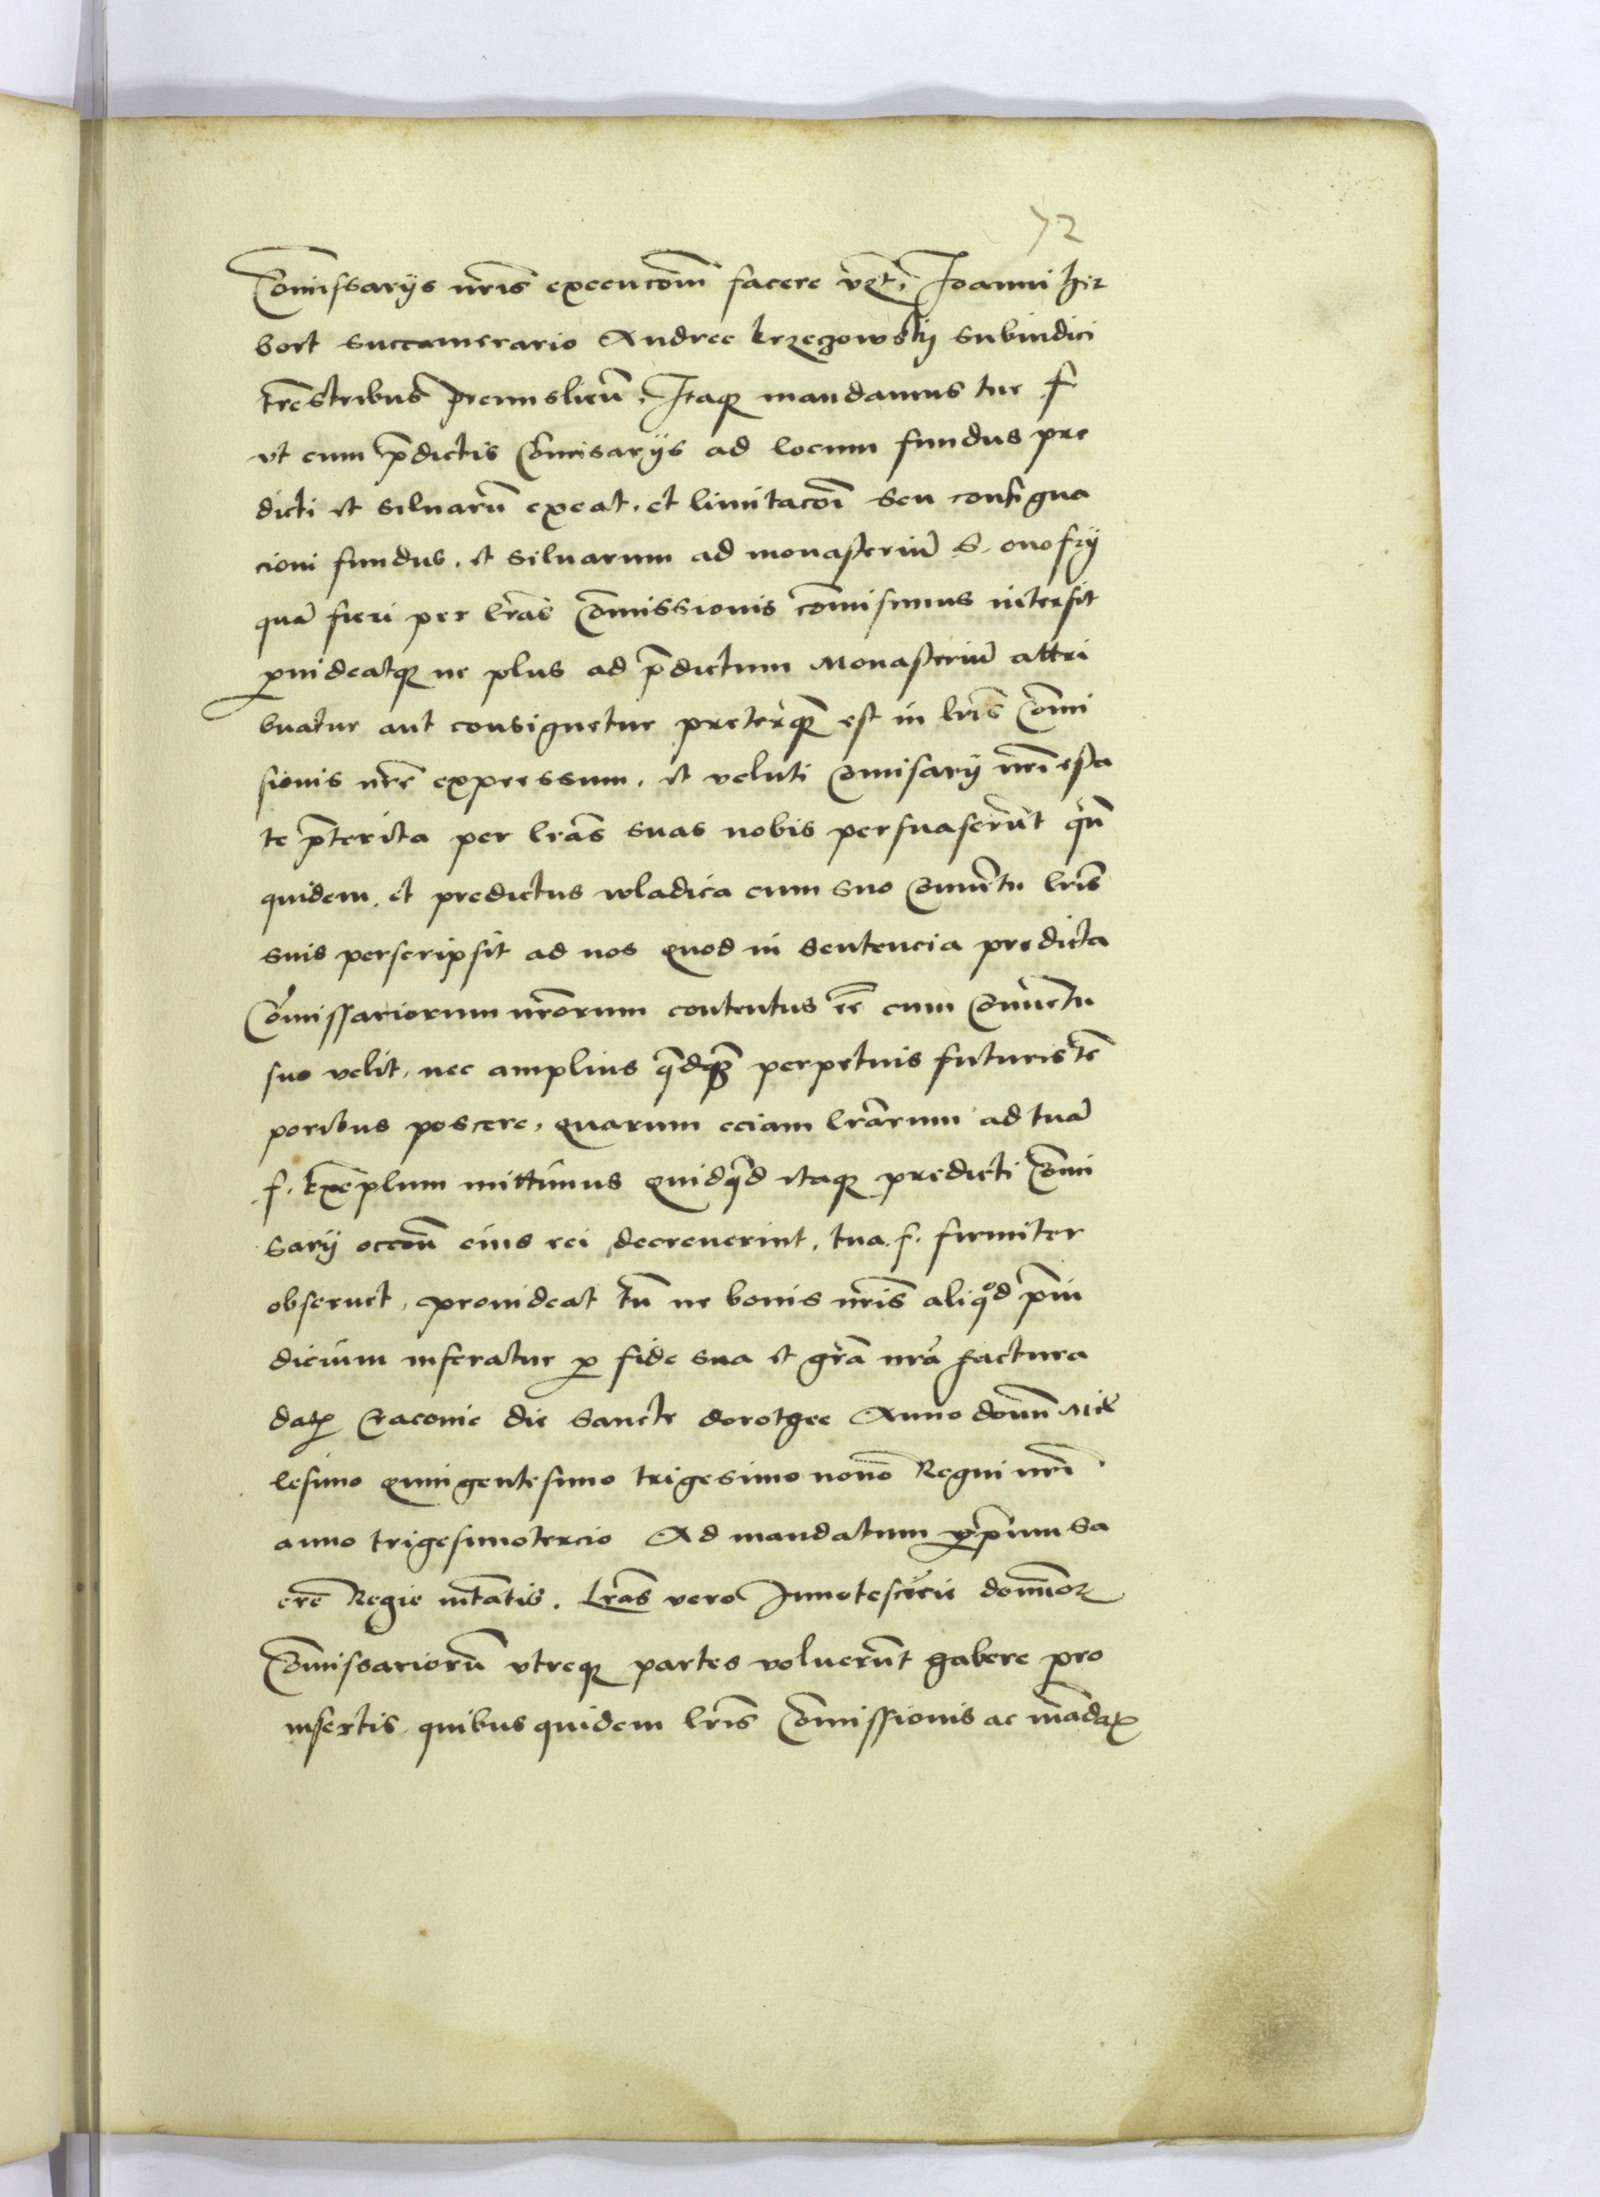 72
Com̃issarijs nr̃is execucom̃ facere vz̃t. Joanni Her
bort succamerario Andree krzeczowskij subiudici
tr̃estribus premislieñ. Itaq3 mandamus tue .f.
vt cum p̃dictis Com̃isarijs ad locum fundus pre
dicti et siluarũ exeat. et limitacoĩ seu consigna
cioni fundus. et siluarum ad monasteriũ S. onofrij
quã fieri per lr̃as Com̃issionis com̃isimus intersit
prouideatq3 ne plus ad p̃dictum Monasteriũ attri
buatur aut consignetur preterq3̃ est in lr̃is Com̃i
sionis nr̃e expressum. et veluti Com̃isarij nr̃i esta
te p̃terita per lr̃as suas nobis persuaserũt
quidem. et predictus wladica cum suo Conuẽtu lr̃is
suis perscripsit ad nos quod in sentencia predicta
Com̃issariorum nr̃orum contentus eẽ cum Conuẽtu
suo velit. nec amplius q̃dq3̃ perpetuis futuris tẽ
poribus poscere. quarum eciam lr̃arum ad tuã
f. Exẽplum mittimus quidq̃d itaq3 predicti Com̃i
sarij occoñe eius rei decreuerint. tua .f. firmiter
obseruet. prouideat tñ ne bonis nr̃is aliqod p̃iu
dicium inferatur p fide sua et gr̃a nr̃a factura
dat3 Cracouie die Sancte dorothee Anno domĩ Mil
lesimo quingentesimo trigesimo nono Regni nr̃i
anno trigesimotercio Ad mandatum pp̃rium Sa
cre Regie mtãtis. Lr̃as vero Innotescẽcie domĩor3
Com̃issariorũ vtreq3 partes voluerũt habere pro
insertis. quibus quidem lr̃is Com̃issionis ac mãdat3